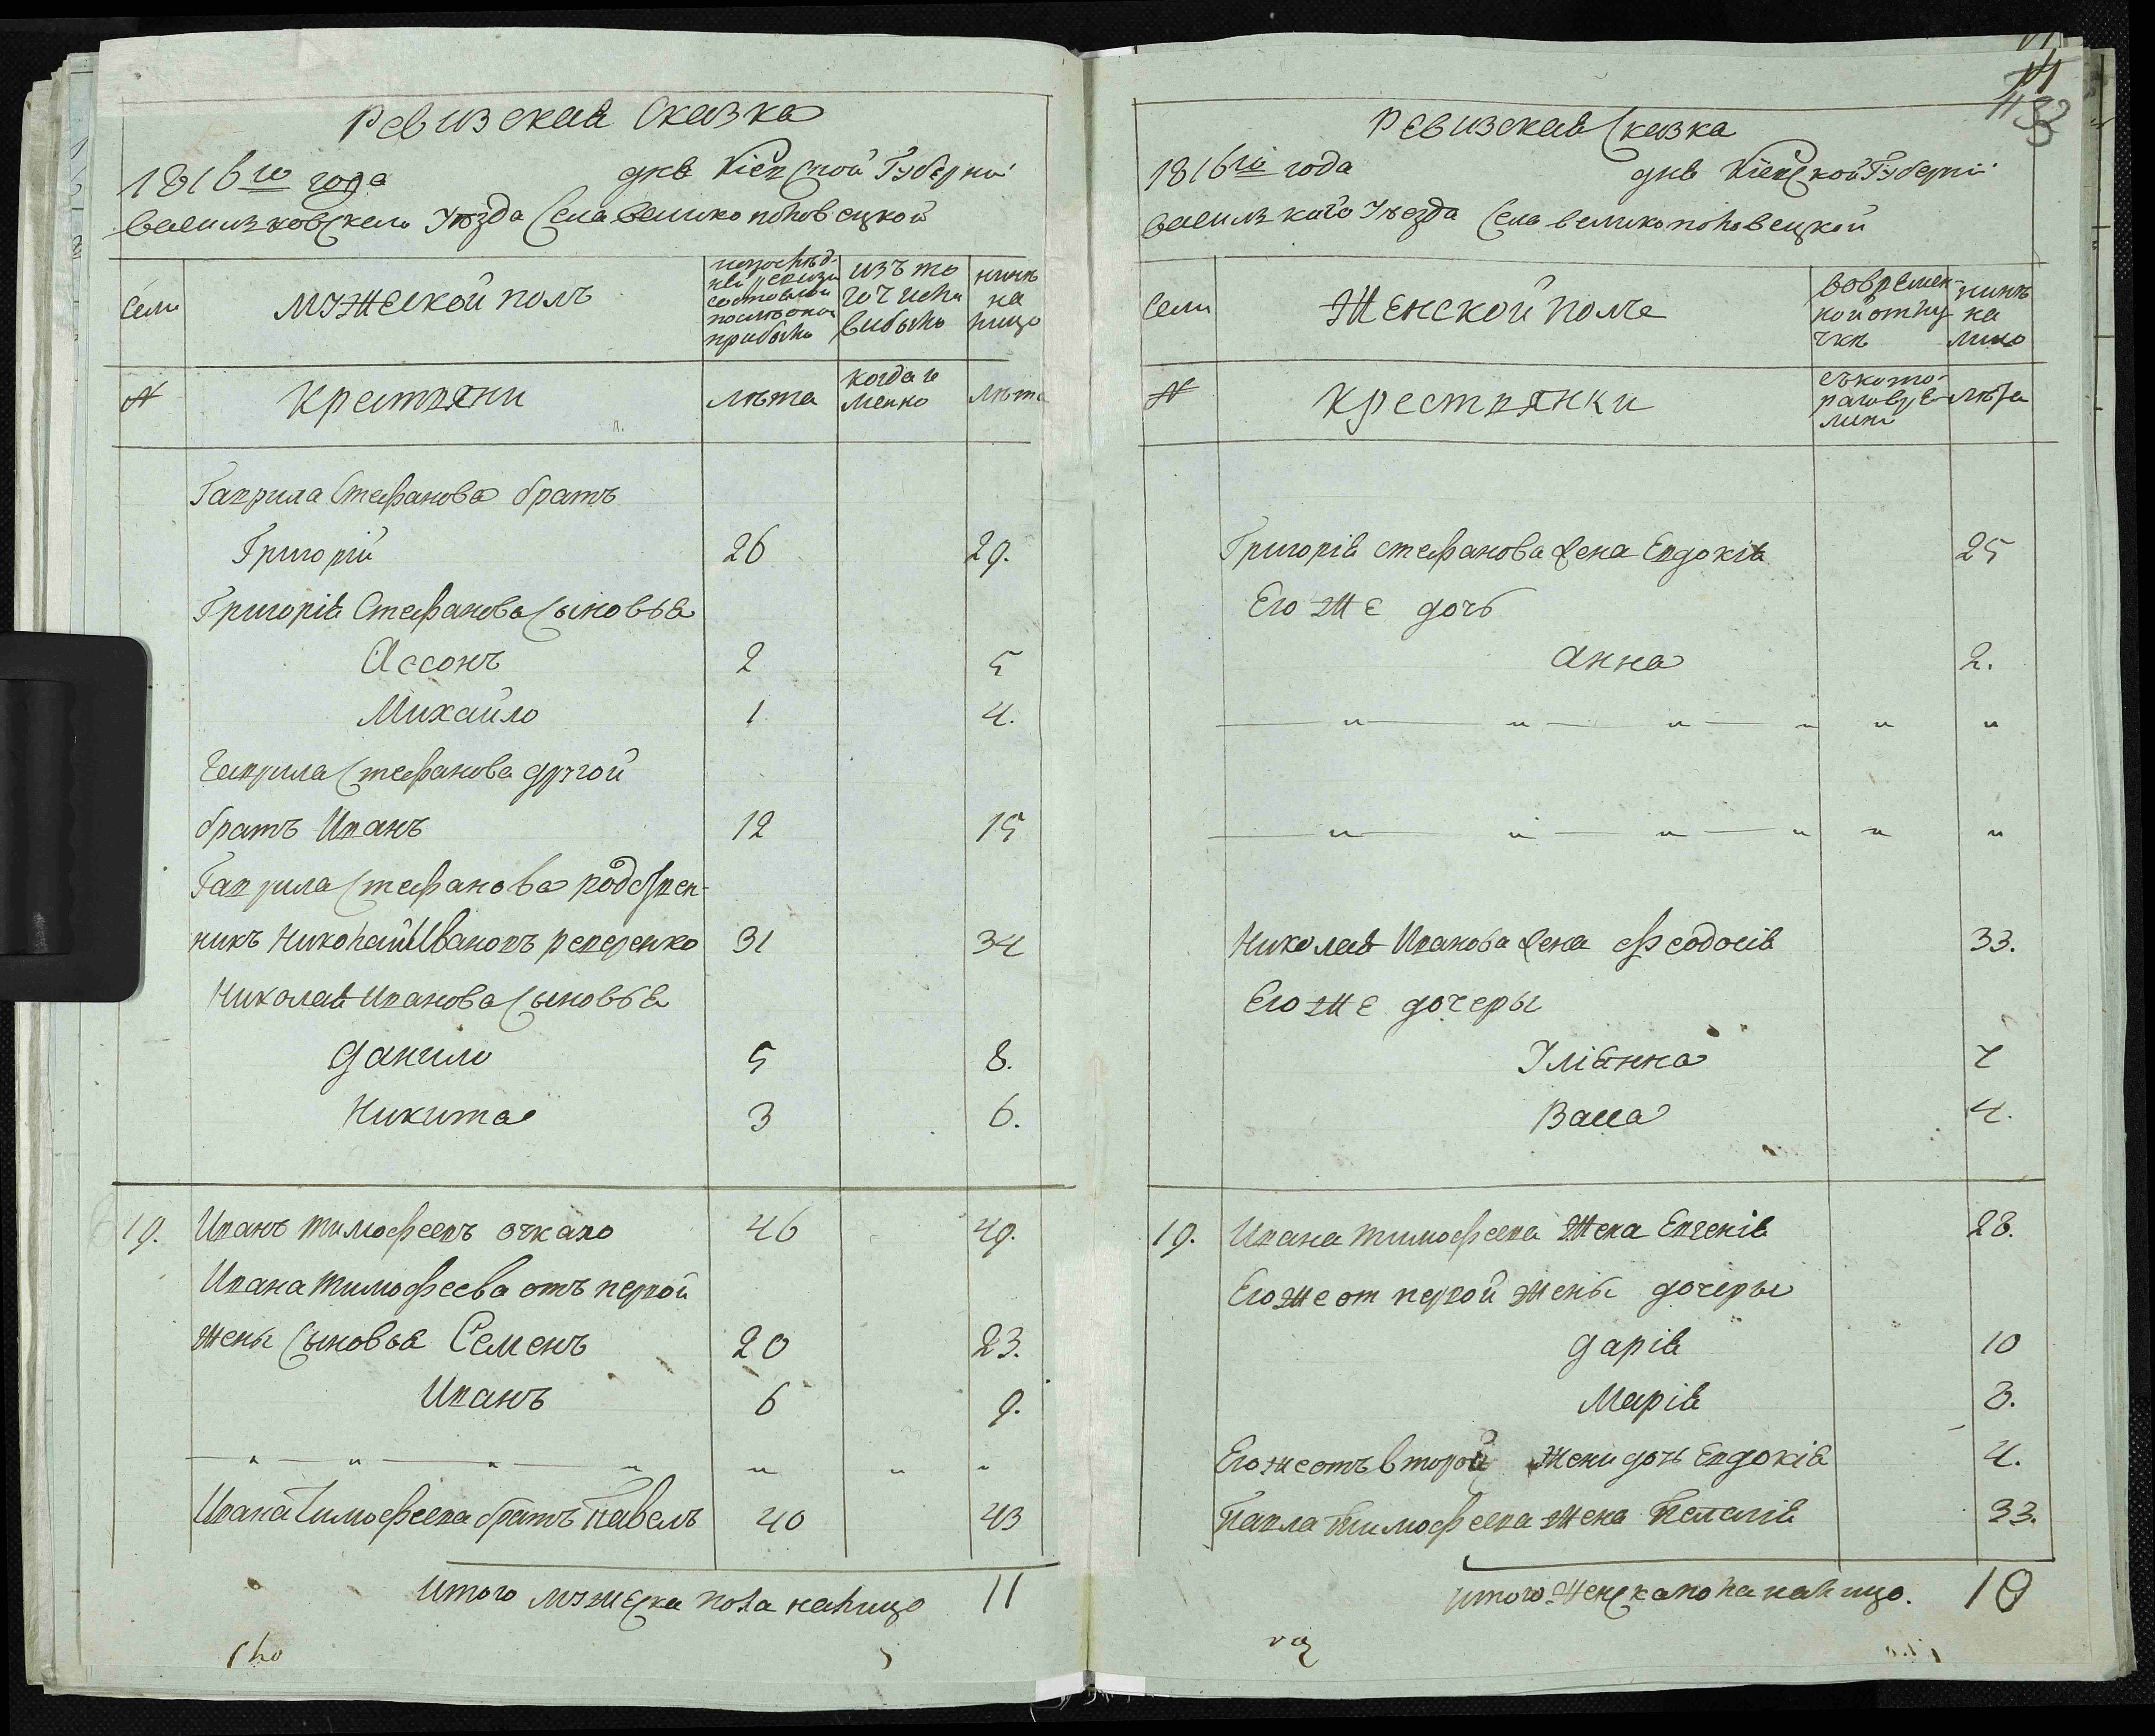 Ревизская Сказка
1816го года дня Кіевской Губерніи
Васильковскаго Уѣзда Села Великополовецкой
Семи
Мужеской полъ
изъ то
го числа
выбыло
нынѣ
на
лицо
№
Крестяни
лѣта
когда и
менно
лѣта
Гаврила Стефанова братъ
Григорій 26 29.
Григорія Стефанова сыновья
Ассонъ 2 5
Михайло 1 4.
Гаврила Стефанова другой
братъ Иванъ 12 15
Гаврила Стефанова родствен-
никъ Николай Ивановъ 31 34
Николая Иванова сыновья
Данило 5 8.
Никита 3 6.
19. Иванъ Тимофеевъ 46 49.
Ивана Тимофеева отъ первой
жены сыновья Семенъ 20 23.
Иванъ 6 9.
— " — " — " — " " " "
Ивана Тимофеева братъ Павелъ 40 43
Итого мужеска пола налицо 11
Ревизская Сказка
1816го года дня Кіевской Губерніи
Василькаго Уѣзда Села Великополовецкой
Семи
Женской поле
вовремен-
ной отлу
чкѣ
нинѣ
на
лицо
№
Крестянки
съ кото-
раго вре
мини
лѣта
Григорія Стефанова жена Евдокія 25
Его же дочь
Анна 2.
— " — " — " — " " "
— " — " — " — " " "
Николая Иванова жена Феодосія 33.
Его же дочеры
Уліянна 7
Васса 4.
19. Ивана Тимофеева жена Евгенія 28.
Его же от первой жены дочеры
Дарія 10
Марія 8.
Его же отъ второй жени дочь Евдокія 4.
Павла Тимофеева жена Пелагія 33.
Итого женска пола налицо. 10